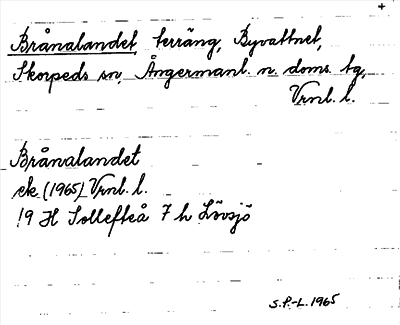 +
Brånalandet, terräng, Byvattnet,
Skorpeds sn, Ångermanl. n. doms. tg,
Vrnl. l.
Brånalandet
ek. (1965) Vrnl. l.
19 H Sollefteå 7 h Lövsjö
S.P.-L. 1965